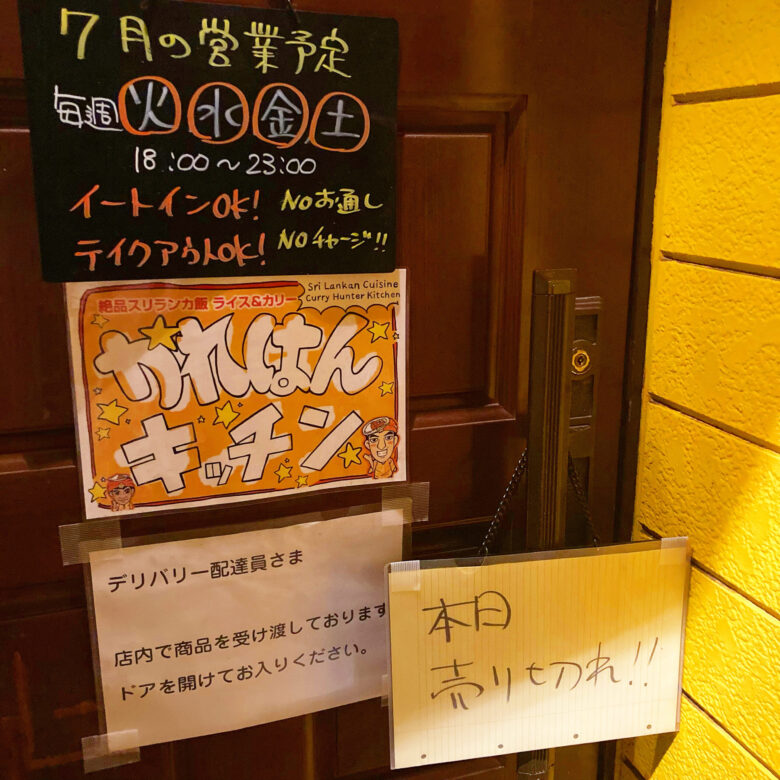 7月の営業予定
毎週火水金土
18:00〜23:00
イートインOK! NOお通し
テイクアウトOK! NOチャージ!!
Sri Lankan Cuisine
Curry Hunter Kitchen
絶品スリランカ飯 ライス&カリー
かれはん
キッチン
デリバリー配達員さま
店内で商品を受け渡しております
ドアを開けてお入りください。
本日
売り切れ!!